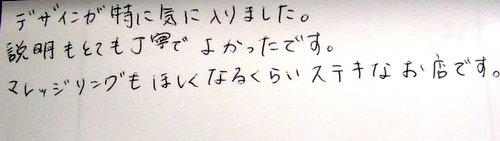 デザインが特に気に入りました。
説明もとても丁寧でよかったです。
マレッジリングもほしくなるくらいステキなお店です。